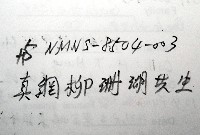 NMNS-8504-003
真網柳珊瑚共生